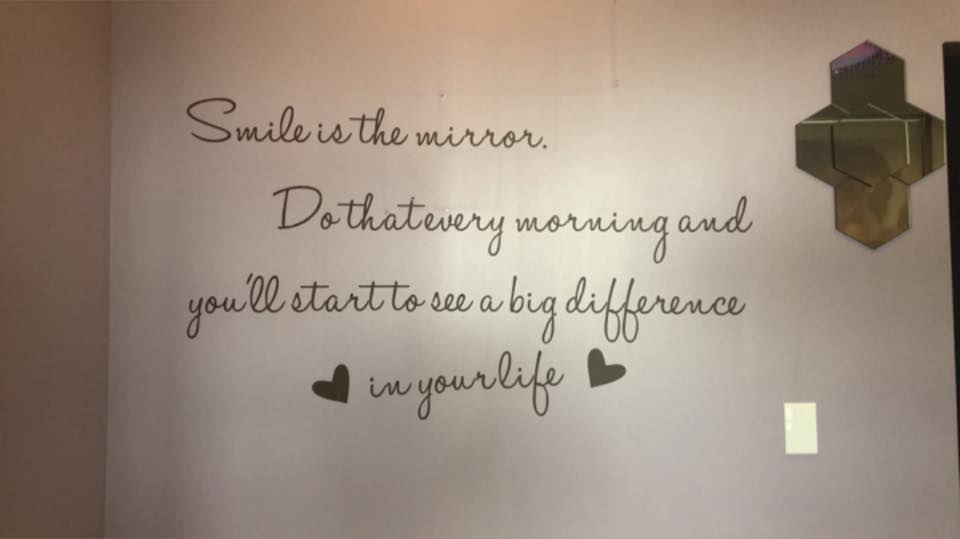 Smile is the mirror.
Do that every morning and
you'll start to see a big difference
in your life